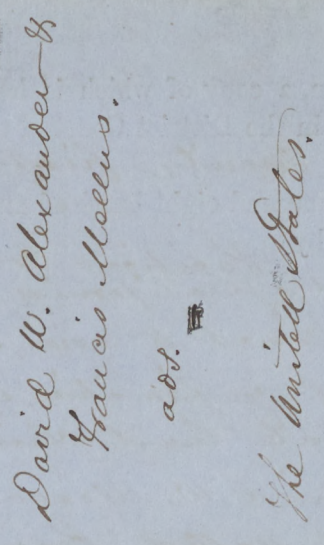 David W. Alexander &
Francis Mellus.
ads.
The United States.